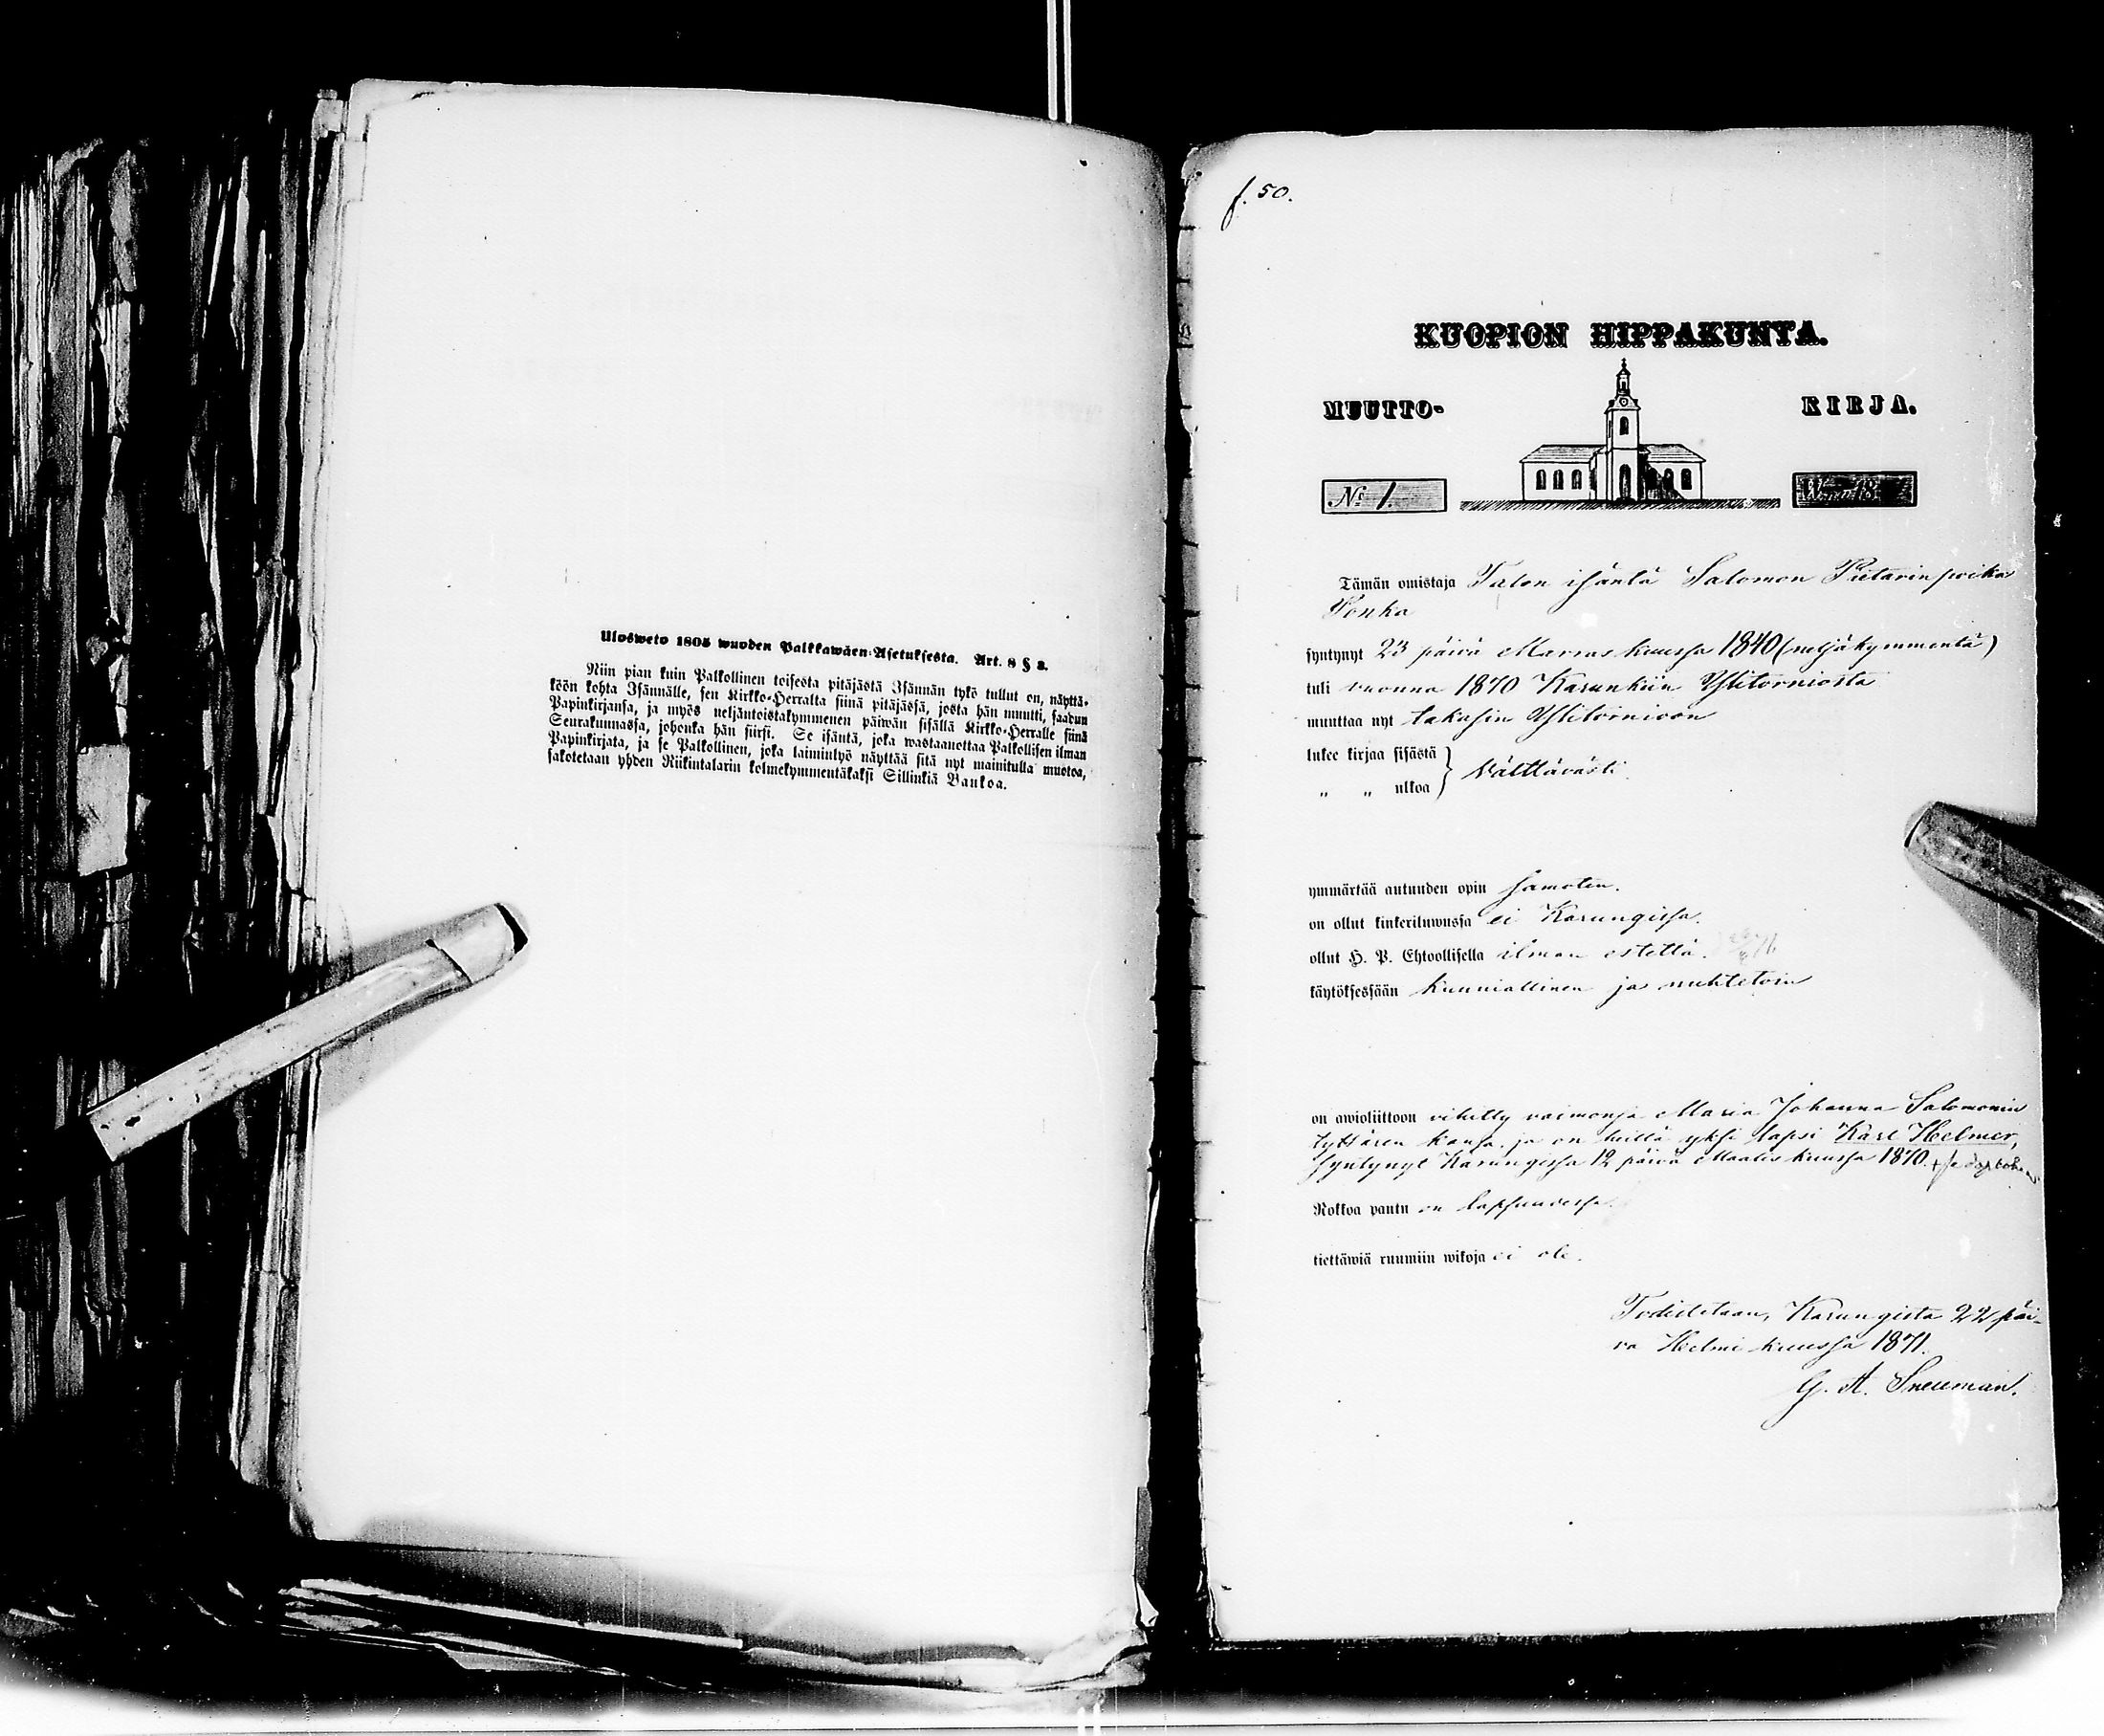 Ulosweto 1805 wuoden Palkkawäen-Asetuksesta. Art. 8 § 2.
Niin pian kuin Palkollinen toisesta pitäjästä Isännän tykö tullut on, näyttä-
köön kohta Isännälle, sen Kirkko-Herralta siinä pitäjässä, josta hän muutti, saadun
Papinkirjansa, ja myös neljäntoistakymmenen päiwän sisällä Kirkko-Herralle siinä
Seurakunnassa, johonka hän siirsi. Se isäntä, joka wastaanottaa Palkollisen ilman
Papinkirjata, ja se Palkollinen, joka laiminlyö näyttää sitä nyt mainitulla muotoa,
sakotetaan yhden Riikintalarin kolmekymmentäkaksi Sillinkiä Bankoa.
f. 50.
KUOPION HIPPAKUNTA.
MUUTTO- KIRJA.
No 1.
Tämän omistaja Talon isäntä Salomon Pietarin poika
Ponka
syntynyt 23 päivä Marras kuussa 1840 (neljäkymmentä)
tuli vuonna 1870 Karunkiin Ylitorniosta
muuttaa nyt takasin Ylitornioon
lukee kirjaa sisästä
" " ulkoa } Välttävästi.
ymmärtää autuuden opin samoten.
on ollut kinkeriluwussa ei Karungissa.
ollut H. P. Ehtoollisella ilman estettä.
käytöksessään kunniallinen ja nuhtetoin
on awioliittoon vihitty vaimonsa Maria Johanna Salomonin
tyttären kansa, ja on heillä yksi lapsi Karl Helmer,
syntynyt Karungissa 12 päivä Maalis kuussa 1870.
Rokkoa pantu on lapsuudessa.
tiettäwiä ruumiin wikoja ei ole.
Todistetaan, Karungista 22 päi-
vä Helmi kuussa 1871.
G. A. Sneuman.